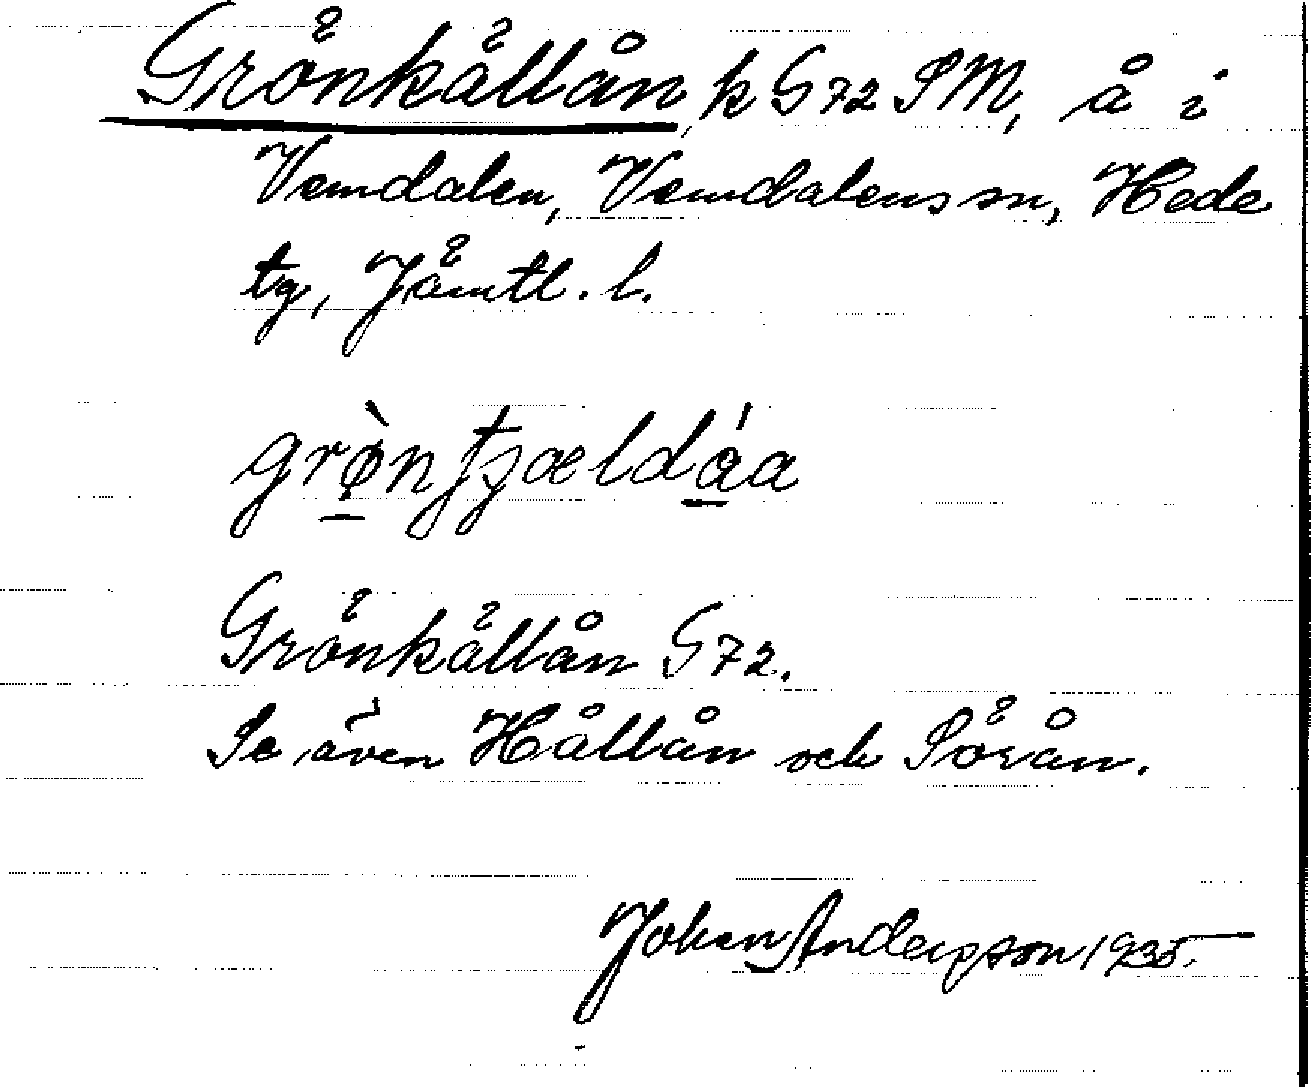 Grönkällån, k G72 SM, å i
Vemdalen, Vemdalens sn, Hede
tg, Jämtl. l.
grø̀ntjældáa
Grönkällån G72.
Se även Hållån och Sörån.
Johan Andersson 1935.